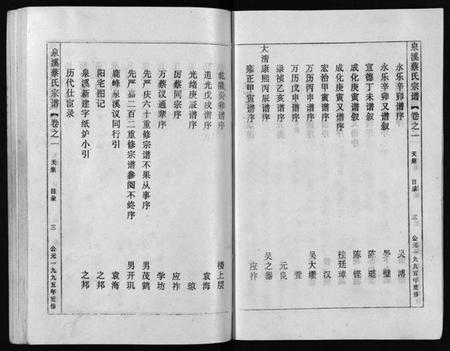 泉溪蔡氏宗谱【卷之一 天集 目录 三 公元一九九五年重修
永乐辛卯谱序 吴溥
永乐辛卯又谱叙
宣德丁未谱叙 陈琏
成化庚寅谱叙 陈铨
成化庚寅又谱序 桂廷璋
宏治甲寅谱序 汉
万历丙申谱序 吴大缵
万历戊申谱序 萱
崇祯乙亥谱序 元良
大清康熙丙辰谱序 吴之器
雍正甲寅谱序 应祚
乾隆癸卯谱序 楼上层
道光戊戌谱序 袁海
光绪庚辰谱序 琼
厉蔡同宗序 应祚
万蔡汉通辈序 学坊
先严庆六十重修宗谱不果从事序 男茂鹤
先严嘉二百二重修宗谱参阅不终序 男开玑
鹿峰泉溪议同行引 袁海
阳宅图记 之邦
泉溪新建字纸炉小引 之邦
历代仕宦录
泉溪蔡氏宗谱【卷之一 天集 目录 三 公元一九九五年重修